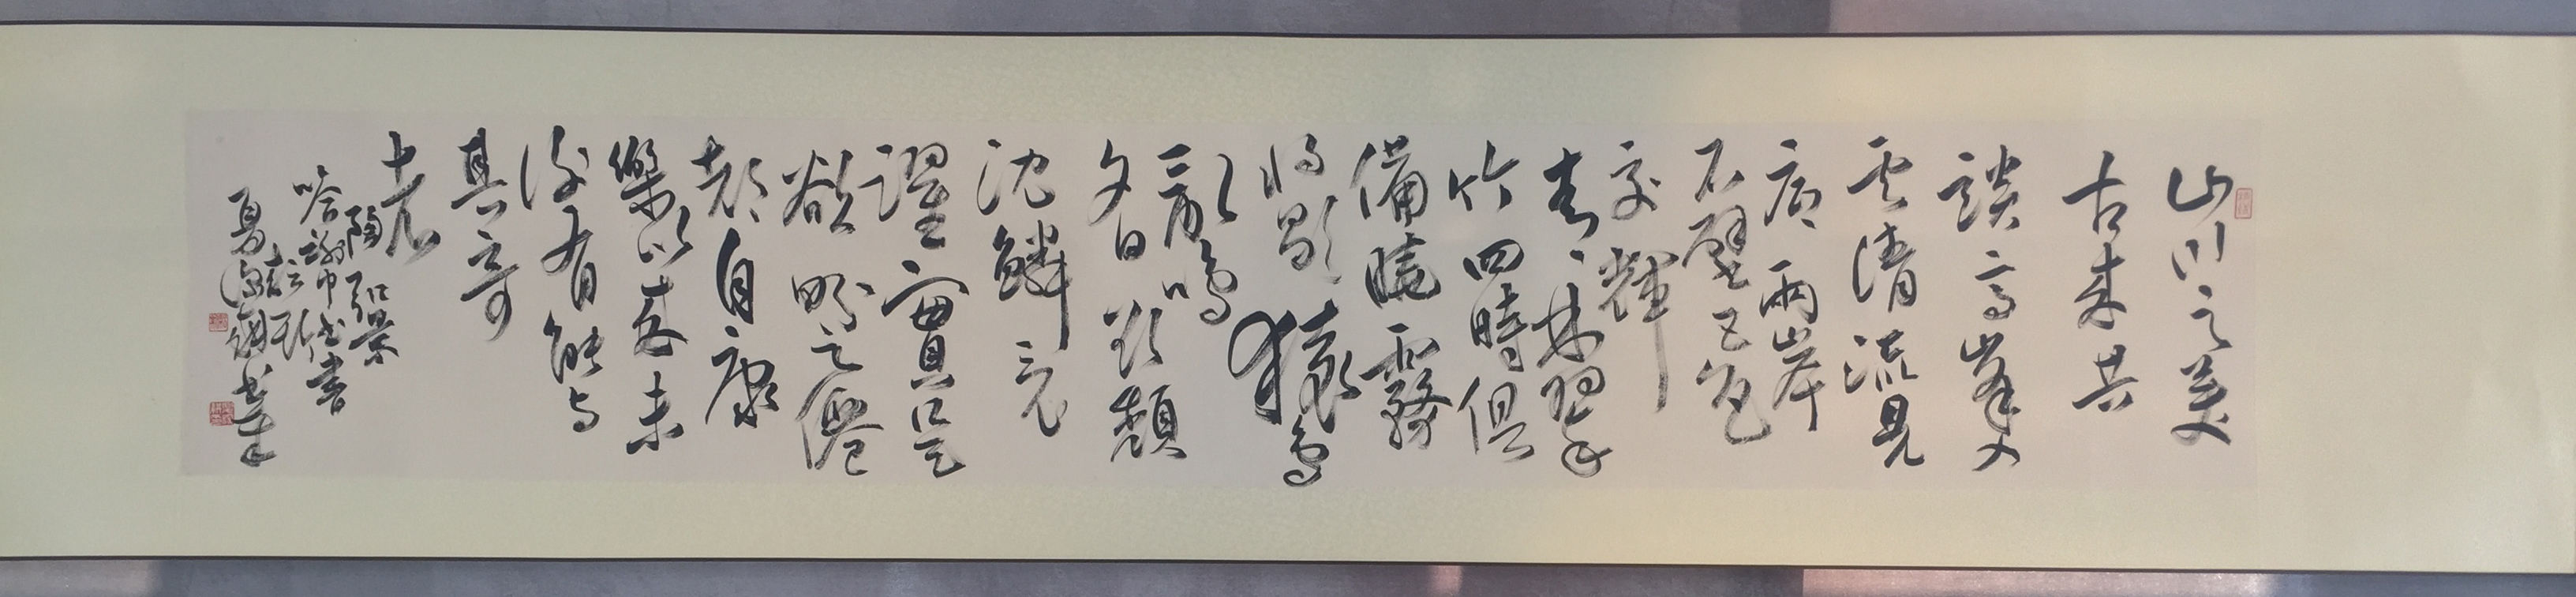 山川之美
古来共
談高峯入
云清流見
底兩岸
石壁五色
交輝
青林翠
竹四時俱
備曉霧
將歇猿鳥
亂鳴
夕日欲頹
沈鱗競
躍實是
欲界之僊
都自康
樂以來未
復有能与
其奇
者
陶弘景
答謝中書書